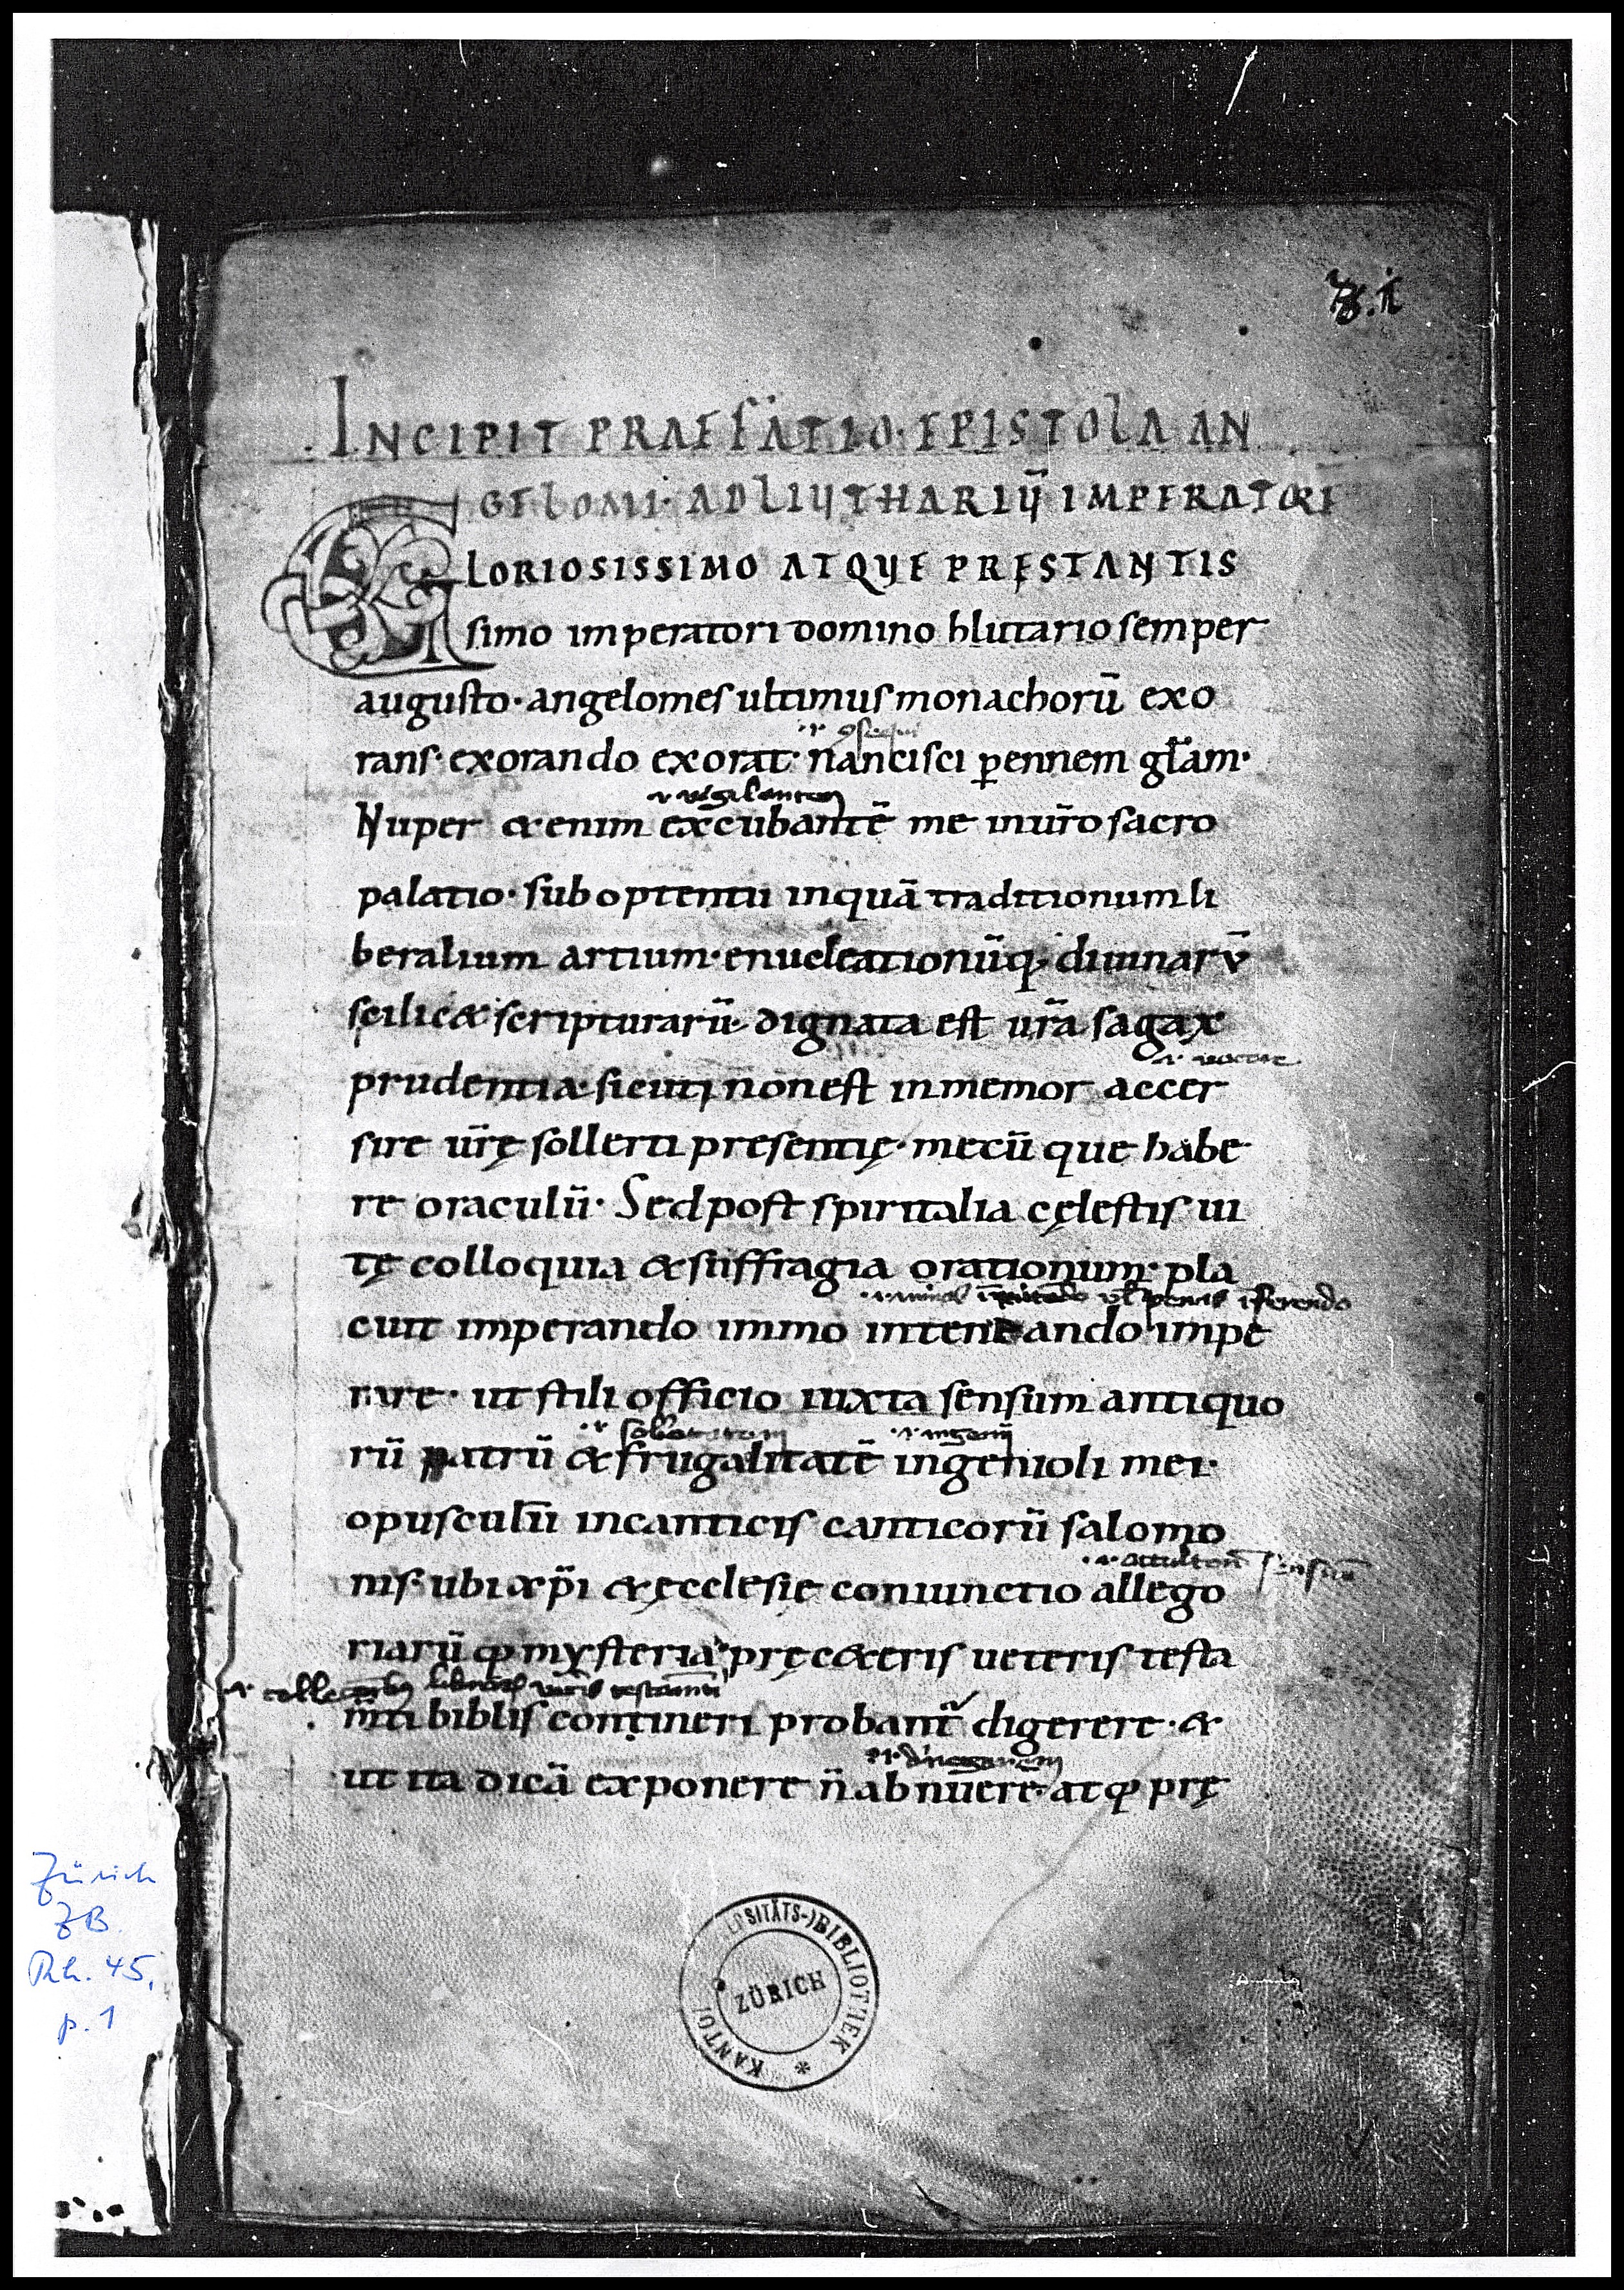 .INCIPIT PRAEFATIO. EPISTOLA AN
GELOMI. AD LIUTHARIŪ IMPERATORĒ
GLORIOSISSIMO ATQUE PRĘSTANTIS
simo imperatori domino hlutario semper
augusto· angelomes ultimus monachorū exo
rans· exorando exorat· nancisci ꝑennem gl̄am·
.i. vigilantem
Nuper &enim excubantē me in ur̄o sacro
palatio· sub optentu inquā traditionum li
beralium artium· enucleationūq; diuinarū
scilic& scripturarū· dignata est ur̄a sagax
prudentia· sicuti non est inmemor accer
sire ur̄ę sollerti presentię· mecū que habe
re oraculū· Sed post spiritalia cęlestis ui
tę colloquia & suffragia orationum· pla
cuit imperando immo intentando impe
rare· ut stili officio iuxta sensum antiquo
.i. ingenii
rū patrū & frugalitatē ingenioli mei·
opusculū in canticis canticorū salomo
.i. occultorū sensuū
nis· ubi xp̄i & ęcclesie coniunctio allego
riarūq; mysteria prę c&eris ueteris testa
m̄ti biblis contineri probant᷑ digerere· &
ut ita dicā exponere n̄ abnuere· atq; prę
KANTO SITÄTS-)BIBLIOTHEK
ZÜRICH
Zürich
ZB
Rh. 45,
p. 1